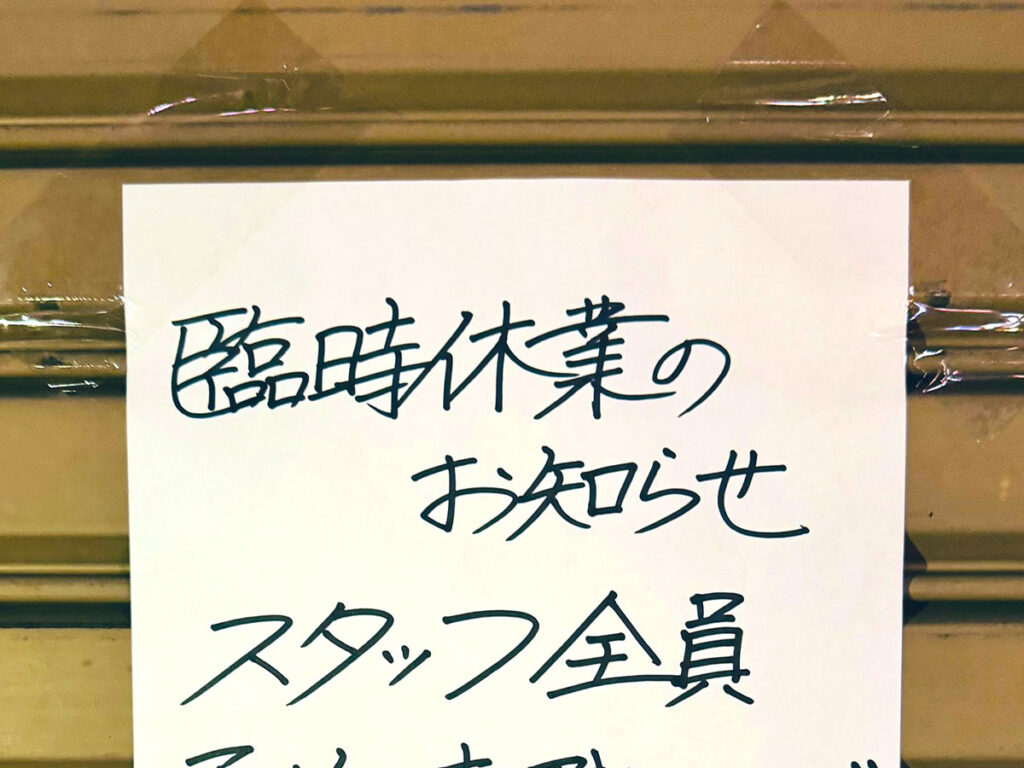 臨時休業の
お知らせ
スタッフ全員